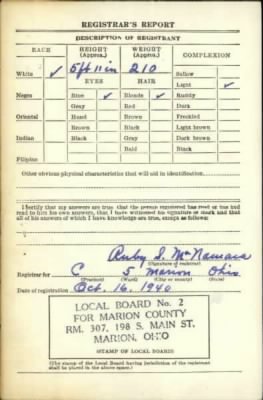 REGISTRAR'S REPORT
DESCRIPTION OF REGISTRANT
RACE HEIGHT (Approx.) WEIGHT (Approx.) COMPLEXION
White ✓ 5 ft 11 in 210 Sallow
EYES HAIR Light ✓
Negro Blue ✓ Blonde ✓ Ruddy
Gray Red Dark
Oriental Hazel Brown Freckled
Brown Black Light brown
Indian Black Gray Dark brown
Bald Black
Filipino
Other obvious physical characteristics that will aid in identification
I certify that my answers are true; that the person registered has read or has had
read to him his own answers; that I have witnessed his signature or mark and that
all of his answers of which I have knowledge are true, except as follows:
Ruby S. McNamara
(Signature of registrar)
Registrar for C 5 Marion Ohio
(Precinct) (Ward) (City or county) (State)
Date of registration Oct. 16, 1940
LOCAL BOARD No. 2
FOR MARION COUNTY
RM. 307, 198 S. MAIN ST.
MARION, OHIO
STAMP OF LOCAL BOARD
(The stamp of the Local Board having jurisdiction of the registrant
shall be placed in the above space.)